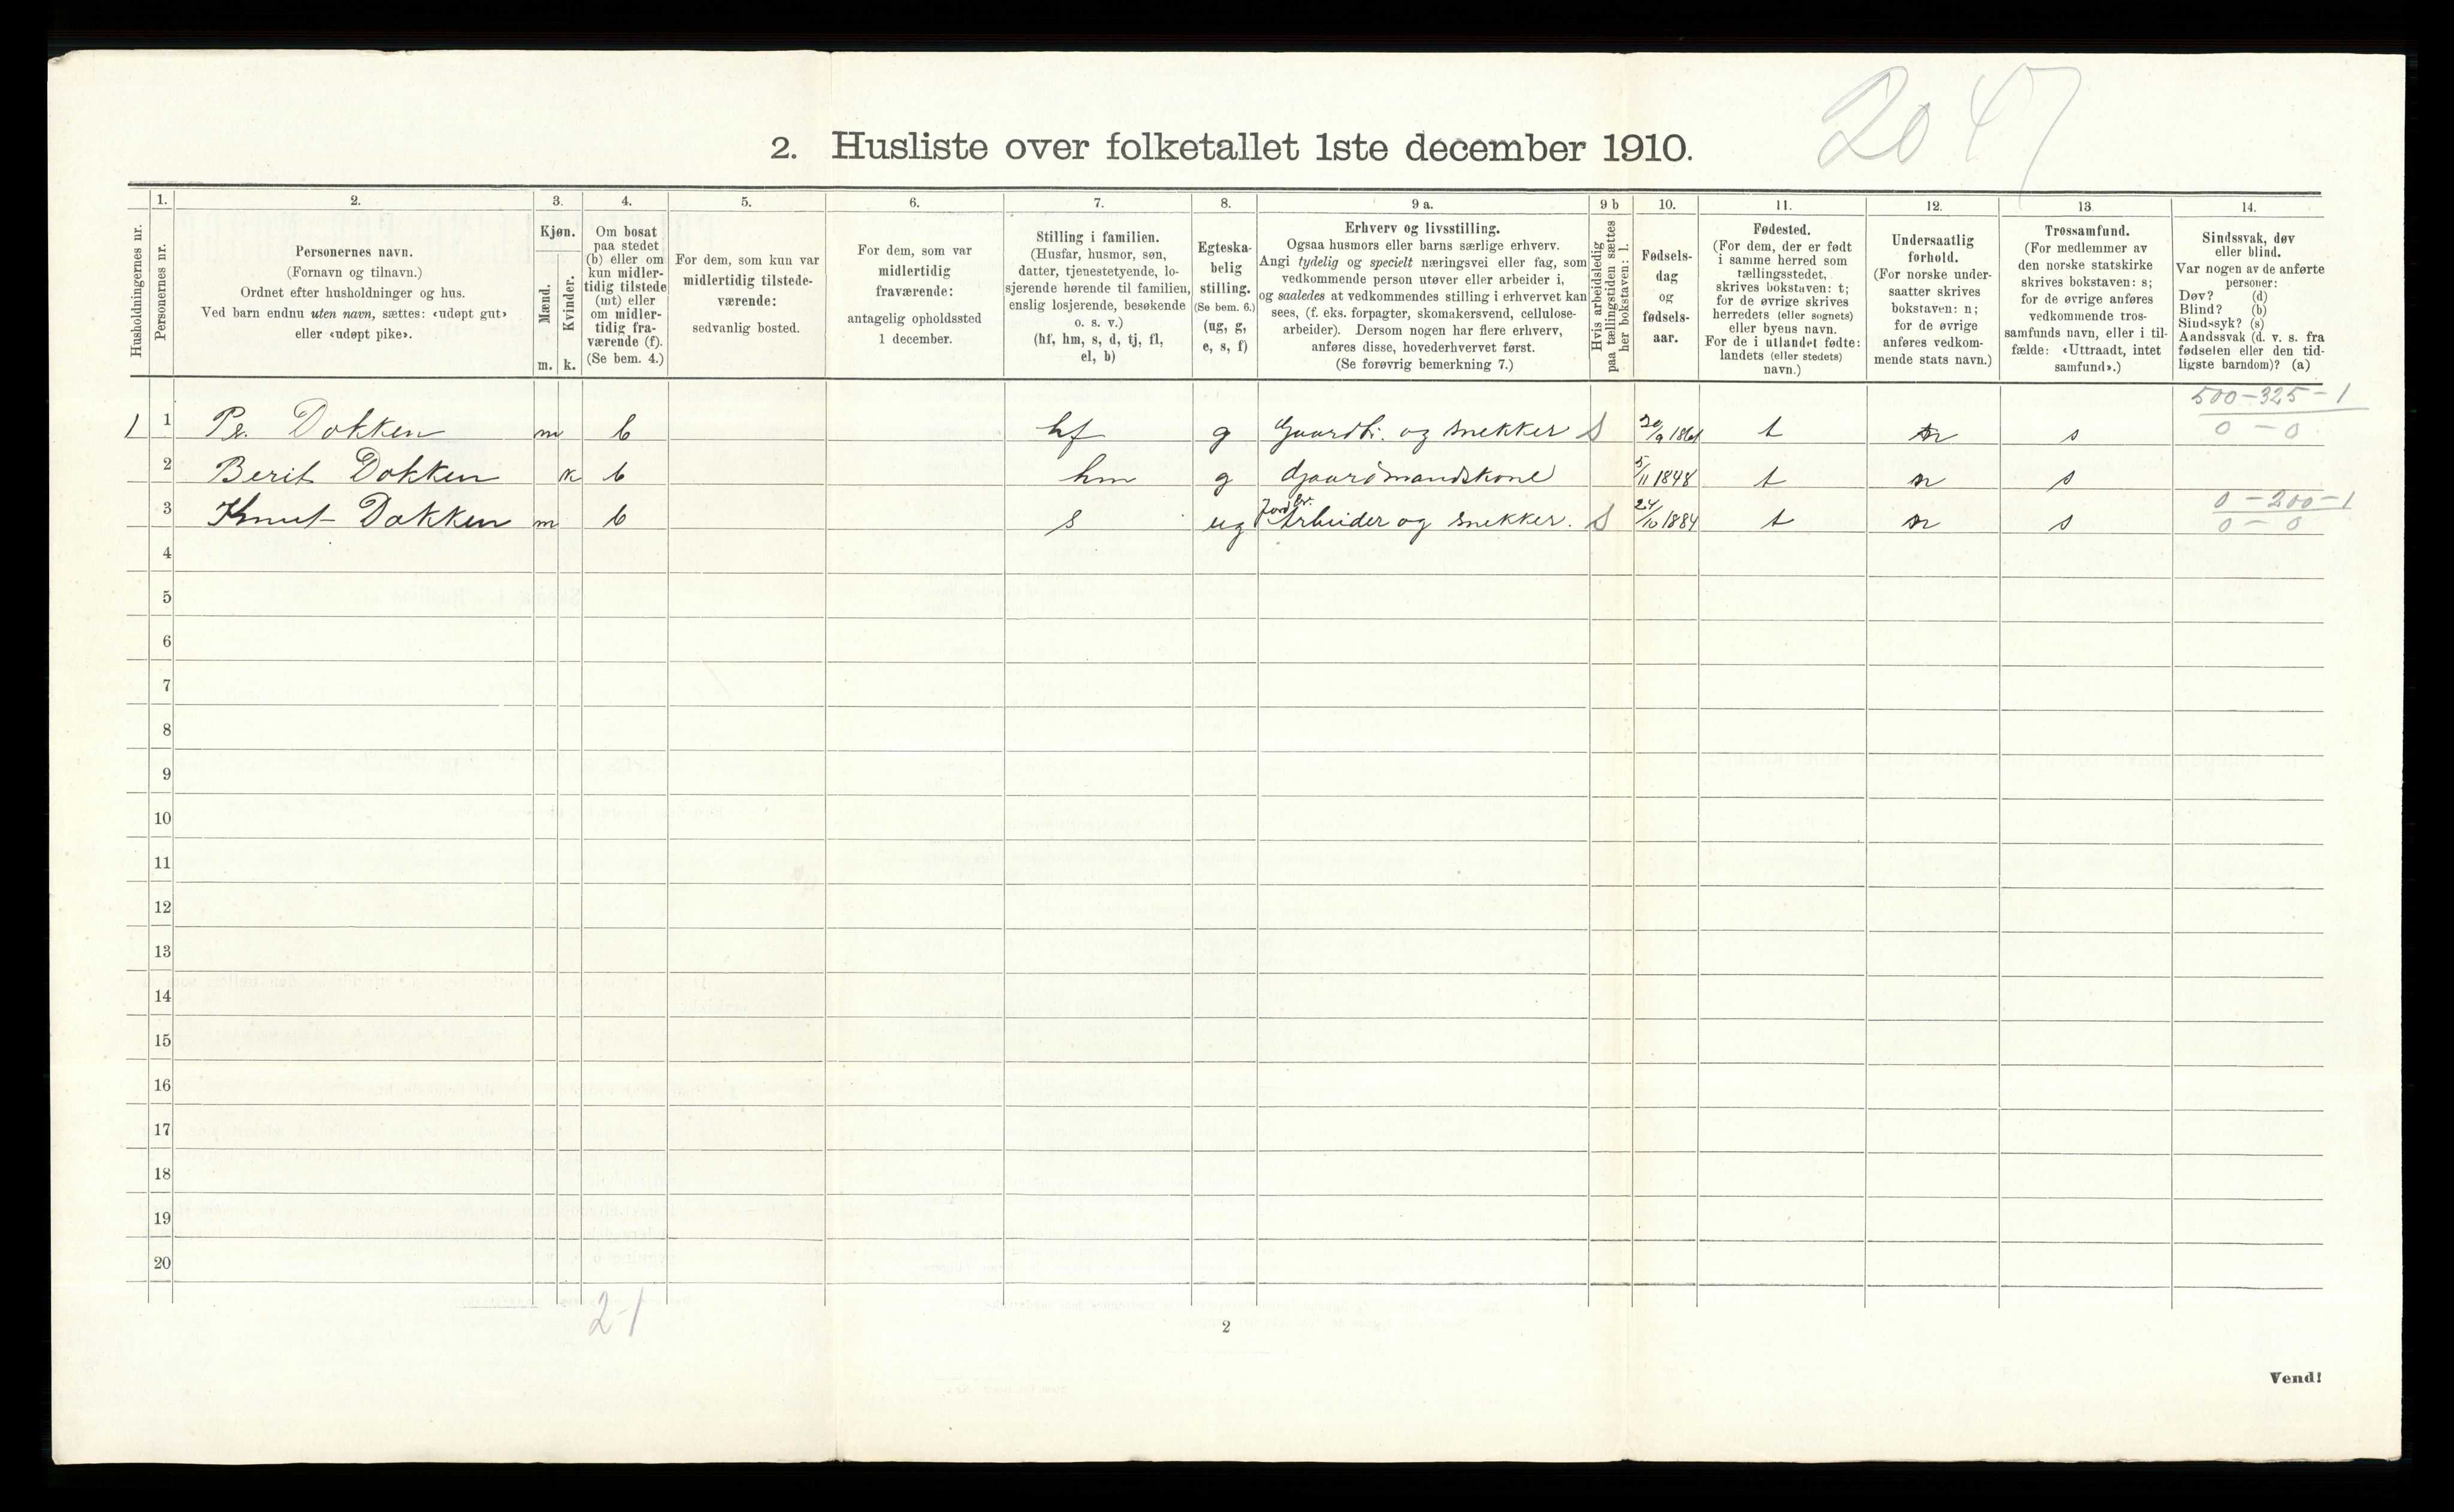 2047
2. Husliste over folketallet 1ste december 1910.
Husholdningernes nr.
1.
Personernes nr.
2.
Personernes navn.
(Fornavn og tilnavn.)
Ordnet efter husholdninger og hus.
Ved barn endnu uten navn, sættes: «udøpt gut»
eller «udøpt pike».
3.
Kjøn.
Mænd.
Kvinder.
m. k.
4.
Om bosat
paa stedet
(b) eller om
kun midler-
tidig tilstede
(mt) eller
om midler-
tidig fra-
værende (f).
(Se bem. 4.)
5.
For dem, som kun var
midlertidig tilstede-
værende:
sedvanlig bosted.
6.
For dem, som var
midlertidig
fraværende:
antagelig opholdssted
1 december.
7.
Stilling i familien.
(Husfar, husmor, søn,
datter, tjenestetyende, lo-
sjerende hørende til familien,
enslig losjerende, besøkende
o. s. v.)
(hf, hm, s, d, tj, fl,
el, b)
8.
Egteska-
belig
stilling.
(Se bem. 6.)
(ug, g,
e, s, f)
9 a.
Erhverv og livsstilling.
Ogsaa husmors eller barns særlige erhverv.
Angi tydelig og specielt næringsvei eller fag, som
vedkommende person utøver eller arbeider i,
og saaledes at vedkommendes stilling i erhvervet kan
sees, (f. eks. forpagter, skomakersvend, cellulose-
arbeider). Dersom nogen har flere erhverv,
anføres disse, hovederhvervet først.
(Se forøvrig bemerkning 7.)
9 b
Hvis arbeidsledig
paa tællingstiden sættes
her bokstaven: l.
10.
Fødsels-
dag
og
fødsels-
aar.
11.
Fødested.
(For dem, der er født
i samme herred som
tællingsstedet,
skrives bokstaven: t;
for de øvrige skrives
herredets (eller sognets)
eller byens navn.
For de i utlandet fødte:
landets (eller stedets)
navn.)
12.
Undersaatlig
forhold.
(For norske under-
saatter skrives
bokstaven: n;
for de øvrige
anføres vedkom-
mende stats navn.)
13.
Trossamfund.
(For medlemmer av
den norske statskirke
skrives bokstaven: s;
for de øvrige anføres
vedkommende tros-
samfunds navn, eller i til-
fælde: «Uttraadt, intet
samfund».)
14.
Sindssvak, døv
eller blind.
Var nogen av de anførte
personer:
Døv? (d)
Blind? (b)
Sindssyk? (s)
Aandssvak (d. v. s. fra
fødselen eller den tid-
ligste barndom)? (a)
500-325-1
1 1 Pr. Dokken m b hf g Gaardbr. og snekker S 20/9 1861 t n s 0-0
2 Berit Dokken k b hm g Gaardmandskone 5/11 1848 t n s
Jordbr. 0-200-1
3 Knut Dokken m b s ug Arbeider og snekker. S 24/10 1884 t n s 0-0
4
5
6
7
8
9
10
11
12
13
14
15
16
17
18
19
20
2-1
2
Vend!